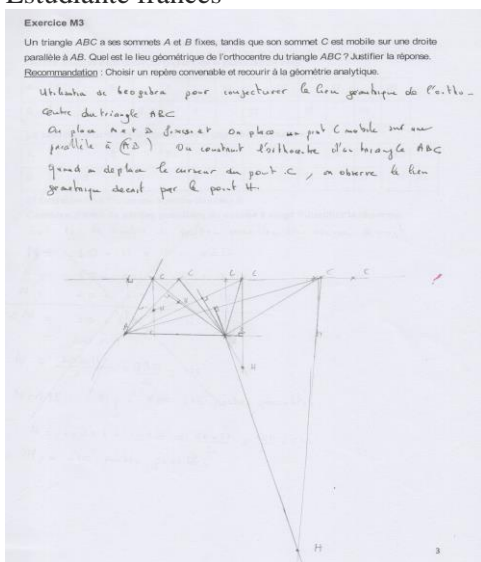 Estudiante francés
Exercice M3
Un triangle ABC a ses sommets A et B fixes, tandis que son sommet C est mobile sur une droite
parallèle à AB. Quel est le lieu géométrique de l'orthocentre du triangle ABC ? Justifier la réponse.
Recommandation : Choisir un repère convenable et recourir à la géométrie analytique.
Utilisation de Geogebra pour conjecturer le lieu géométrique de l'ortho-
centre du triangle ABC
On place A et B fixes et on place un point C mobile sur une
parallèle à (AB) On construit l'orthocentre d'un triangle ABC
quand on deplace le curseur du point C, on observe le lieu
geometrique decrit par le point H.
C C C C C C
H H
A
H
H
3